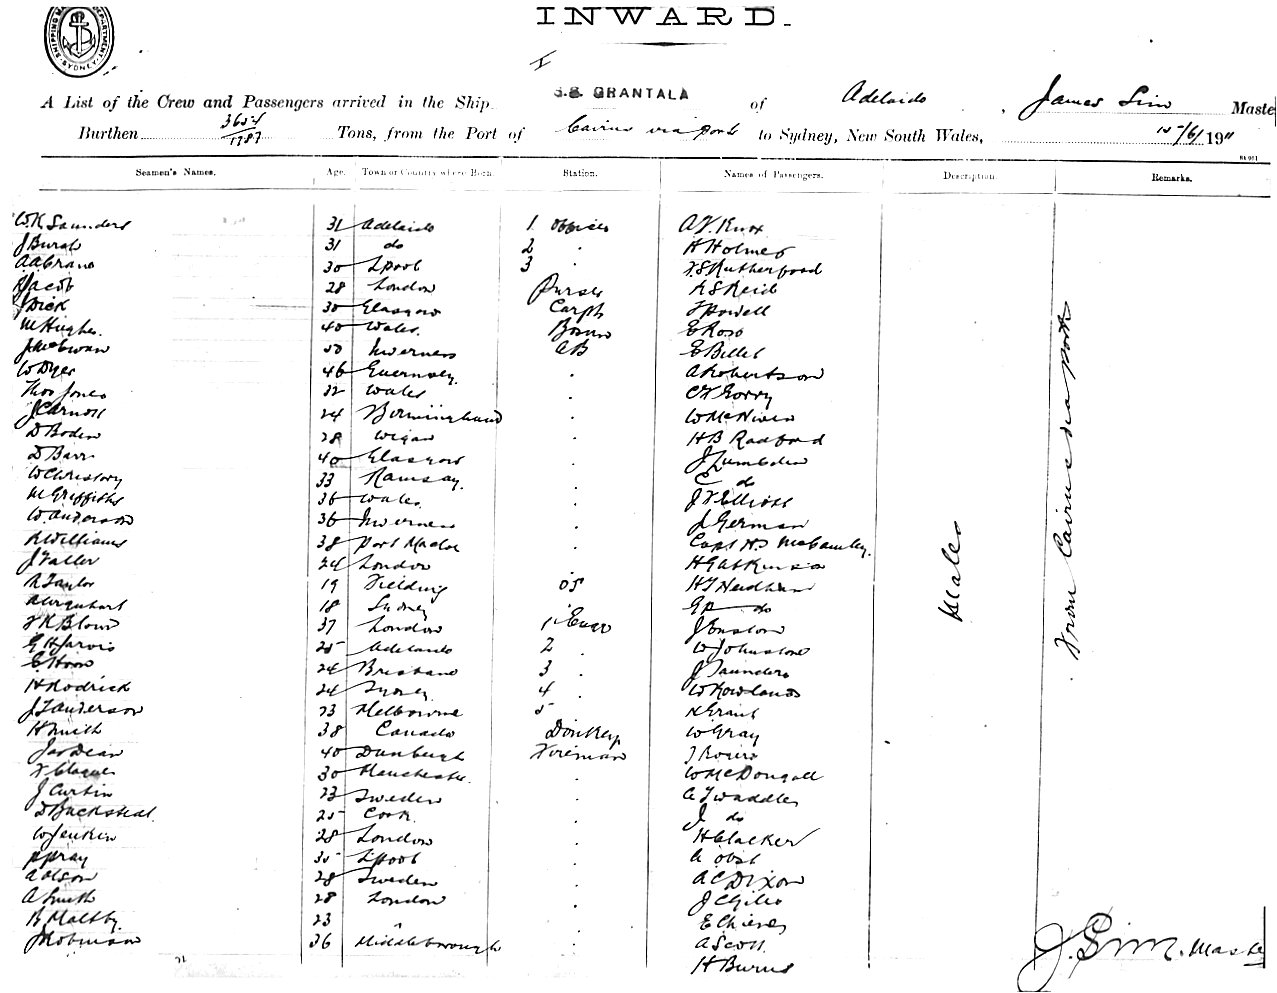 INWARD.
SHIPPING DEPARTMENT SYDNEY
A List of the Crew and Passengers arrived in the Ship S.S. GRANTALA of Adelaide, James Sim Maste
Burthen 3654/1787 Tons, from the Port of Cairns via ports to Sydney, New South Wales, 15/6/1911
Seamen's Names. Age. Town or Country where Born. Station. Names of Passengers. Description Remarks.
W.K. Saunders 31 Adelaide 1 Officer Knox
31 do 2 . H Holmes
30 L'pool 3 . Rutherford
Jacob 28 London Purser R S Reid
J Dick 30 Glasgow Carptr Powell
M Hughes. 40 Wales. Bosun E Ross
J McEwan 50 Inverness AB E Billet
W Dyer 46 Guernsey. . A Robertson
Thos Jones 32 Wales . Gorry
24 Birmingham . W McNiven
D Boden 28 Wigan . H B Radford
D Barr 40 Glasgow . J Lumsden
W Christory 33 Ramsay. . C do
M Griffiths 36 Wales. . J F Elliott
W Anderson 36 Inverness . J German
R Williams 38 Port Madoc . Capt
24 London . H G Atkinson
R Taylor 19 Feilding OS H T Needham
A Urquhart 18 Sydney do
37 London 1st Engr
G H Jarvis 25 Adelaide 2 . W Johnstone
24 Brisbane 3 . J Saunders
H Rodrick 24 Sydney 4 . W Rowlands
Anderson 23 Melbourne 5 Grant
H Smith 38 Canada Donkey W Gray
Jas Dean 40 Fireman
30 Manchester. . W McDougall
J Curtin 23 Sweden . A Twaddle
25 Cork . J do
W Jenkin 28 London . H Clacker
P Pray 35 L'pool . A Obst
A Olson 28 Sweden . A C Dixon
A Smith 28 London .
R Maltby. 23 "
J Robinson 36 Middleborough . A Scott
H Burns
Males
From Cairns via ports
J. Sim. Maste